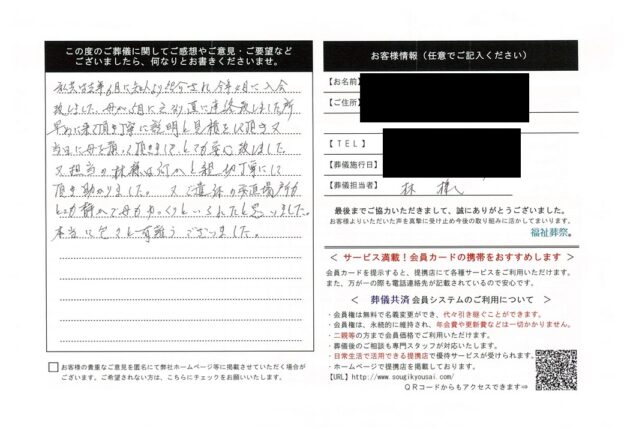 この度のご葬儀に関してご感想やご意見・ご要望など
ございましたら、何なりとお書きくださいませ。
今年4月に入会
致しました。母が5月に
早々に来て頂き丁寧に説明し見積をして頂き又
当日に母を
又担当の林様は
頂き助かりました。又
とても静かで母もゆっくり
本当に色々と有難うございました。
お客様の貴重なご意見を匿名にて弊社ホームページ等に掲載させていただく場合が
ございます。ご希望されない方は、こちらにチェックをお願いいたします。
お客様情報(任意でご記入ください)
【お名前】
【ご住所】
【TEL】
【葬儀施行日】
【葬儀担当者】 林 様
最後までご協力いただきまして、誠にありがとうございました。
お客様よりいただいた声を真摯に受け止め今後の取り組みに活かしてまいります。
福祉葬祭。
< サービス満載!会員カードの携帯をおすすめします >
会員カードを提示すると、提携店にて各種サービスをご利用いただけます。
また、万が一の際も電話連絡先が記載されているので安心です。
< 葬儀共済 会員システムのご利用について >
・会員権は無料で名義変更ができ、代々引き継ぐことができます。
・会員権は、永続的に維持され、年会費や更新費などは一切かかりません。
・二親等の方まで会員価格でご利用いただけます。
・葬儀後のご相談も専門スタッフが対応いたします。
・日常生活で活用できる提携店で優待サービスが受けられます。
・ホームページで提携店を掲載しております。
【URL】http://www.sougikyousai.com/
QRコードからもアクセスできます⇒